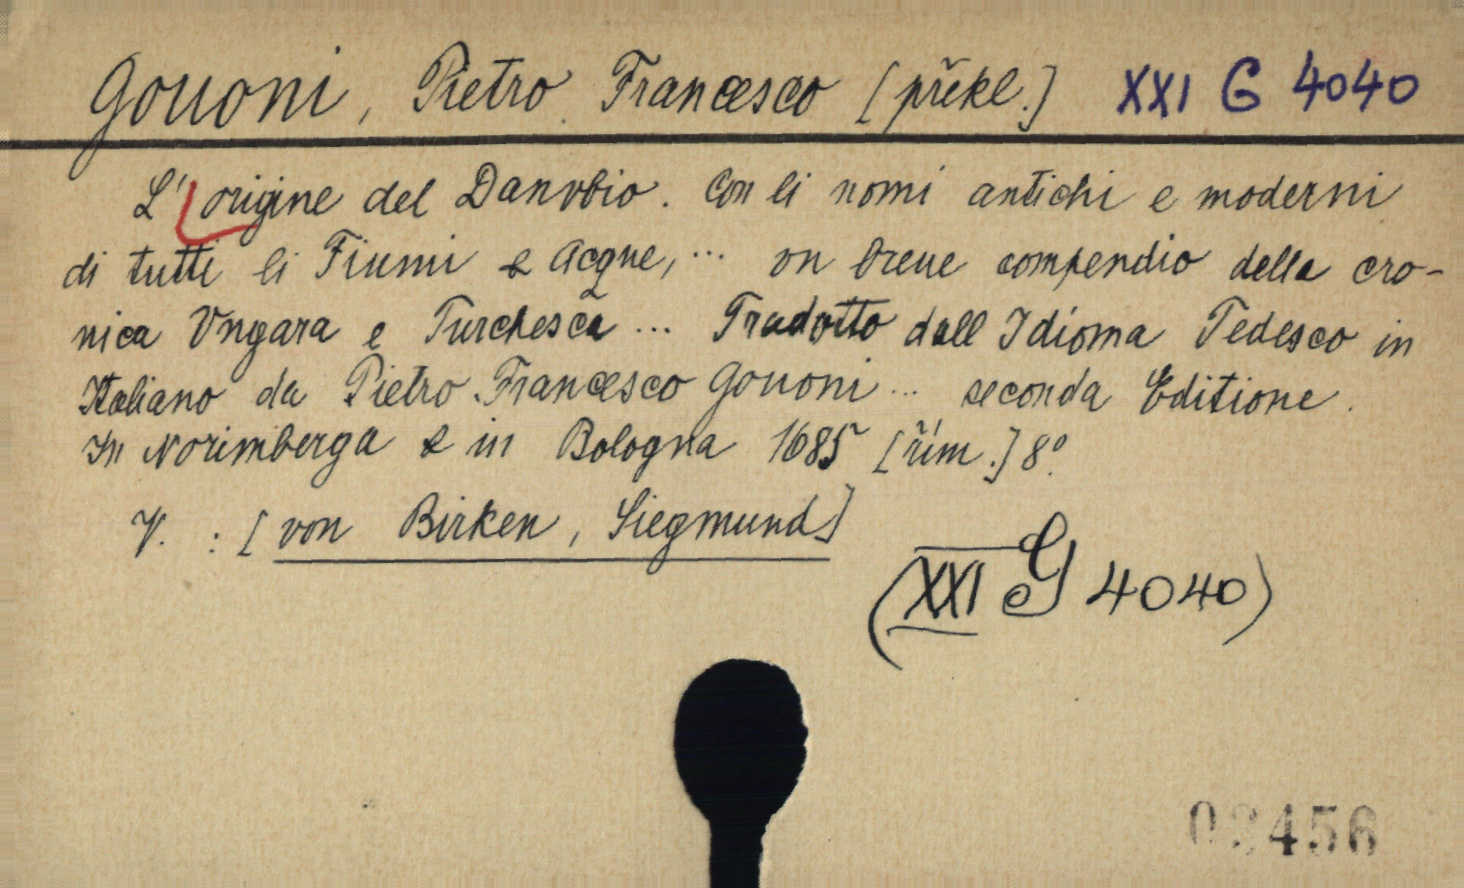 Gouoni, Pietro Francesco [překl.] XXI G 4040
L'origine del Danvbio. Con li nomi antichi e moderni
di tutti li Fiumi & Acque, ... vn breue compendio della cro-
nica Vngara e Turchesca ... Tradotto dall Idioma Tedesco in
Italiano da Pietro Francesco Gouoni ... seconda Editione.
In Norimberga & in Bologna 1685 [řím.] 8°.
V. : [von Birken, Siegmund]
(XXI G 4040)